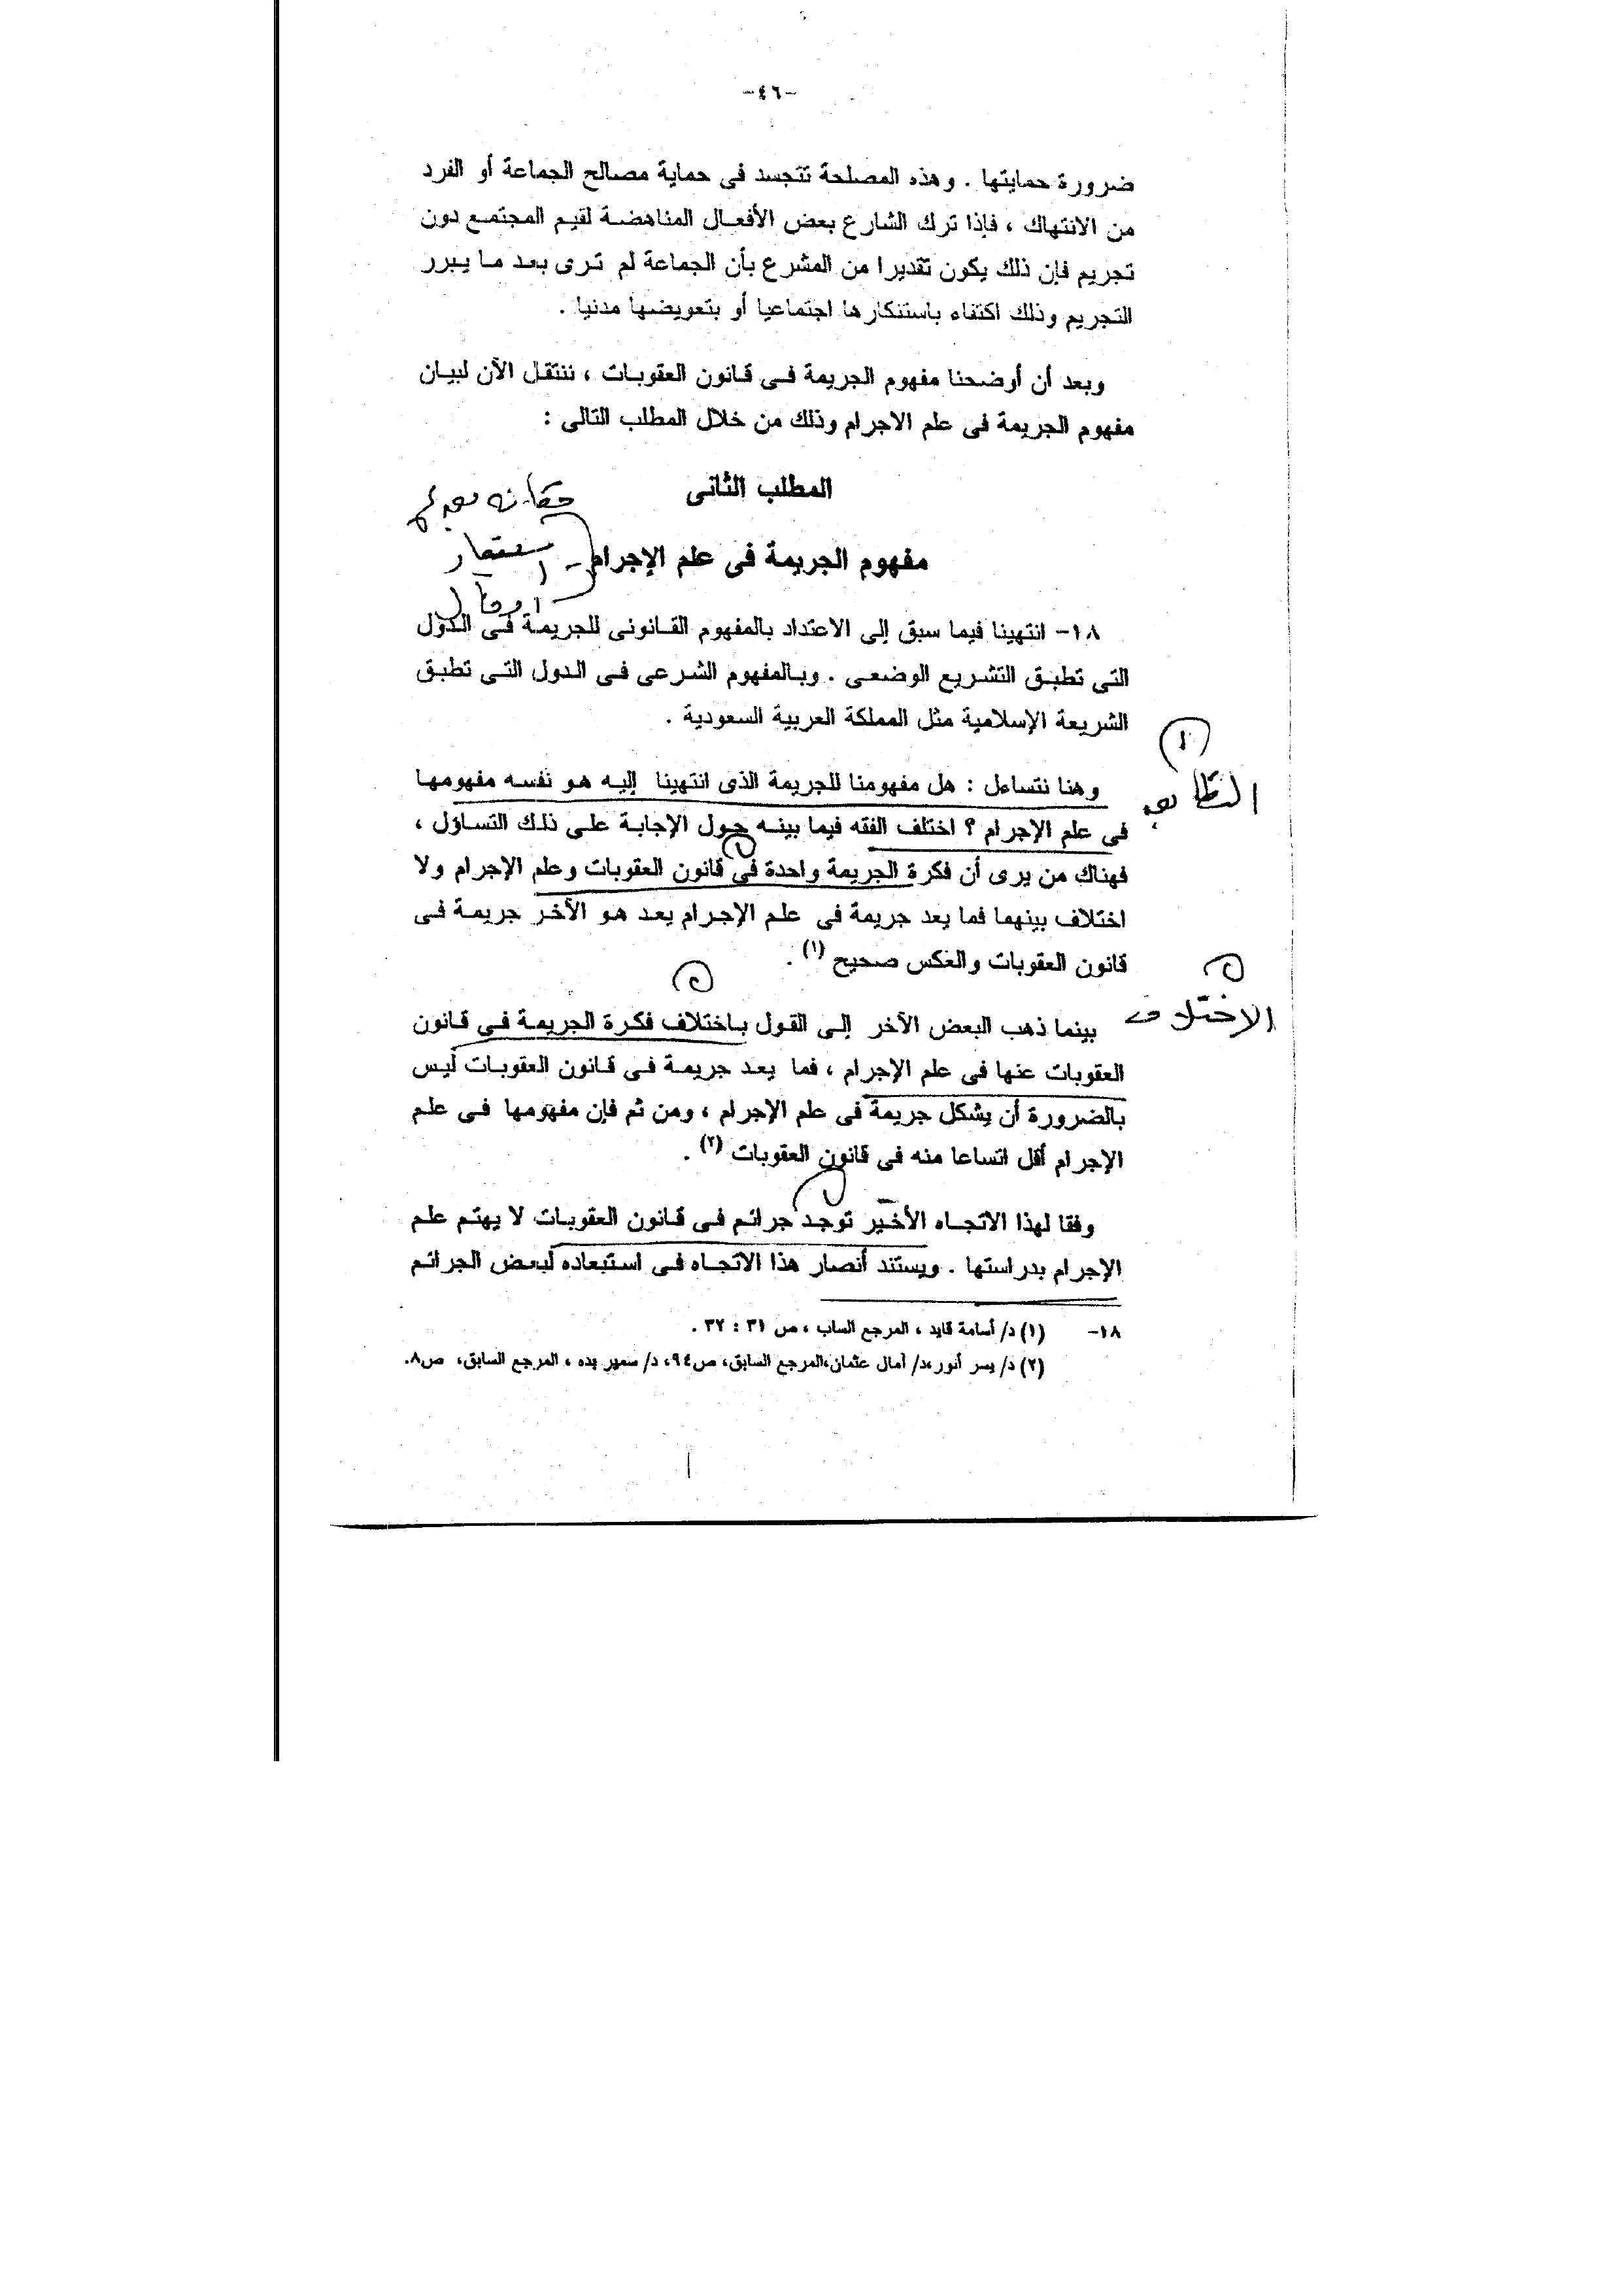 -٤٦-
ضرورة حمايتها . وهذه المصلحة تتجسد فى حماية مصالح الجماعة أو الفرد
من الانتهاك ، فإذا ترك الشارع بعض الأفعال المناهضة لقيم المجتمع دون
تجريم فإن ذلك يكون تقديرا من المشرع بأن الجماعة لم ترى بعد ما يبرر
التجريم وذلك اكتفاء باستنكارها اجتماعيا أو بتعويضها مدنيا .
وبعد أن أوضحنا مفهوم الجريمة فى قانون العقوبات ، ننتقل الآن لبيان
مفهوم الجريمة فى علم الاجرام وذلك من خلال المطلب التالى :
المطلب الثانى
مفهوم الجريمة فى علم الإجرام
١٨- انتهينا فيما سبق إلى الاعتداد بالمفهوم القانونى للجريمة فى الدول
التى تطبق التشريع الوضعى . وبالمفهوم الشرعى فى الدول التى تطبق
الشريعة الإسلامية مثل المملكة العربية السعودية .
١
وهنا نتساءل : هل مفهومنا للجريمة الذى انتهينا إليه هو نفسه مفهومها
التطابق
فى علم الإجرام ؟ اختلف الفقه فيما بينه حول الإجابة على ذلك التساؤل ،
فهناك من يرى أن فكرة الجريمة واحدة فى قانون العقوبات وعلم الإجرام ولا
اختلاف بينهما فما يعد جريمة فى علم الإجرام يعد هو الآخر جريمة فى
قانون العقوبات والعكس صحيح (١) .
الاختلاف
بينما ذهب البعض الآخر إلى القول باختلاف فكرة الجريمة فى قانون
العقوبات عنها فى علم الإجرام ، فما يعد جريمة فى قانون العقوبات ليس
بالضرورة أن يشكل جريمة فى علم الإجرام ، ومن ثم فإن مفهومها فى علم
الإجرام أقل اتساعا منه فى قانون العقوبات (٢) .
وفقا لهذا الاتجاه الأخير توجد جرائم فى قانون العقوبات لا يهتم علم
الإجرام بدراستها . ويستند أنصار هذا الاتجاه فى استبعاده لبعض الجرائم
١٨- (١) د/ أسامة قايد ، المرجع الساب ، ص ٣١ : ٣٢ .
(٢) د/ يسر أنور، د/ آمال عثمان، المرجع السابق، ص٩٤، د/ سمير بده ، المرجع السابق، ص٨.